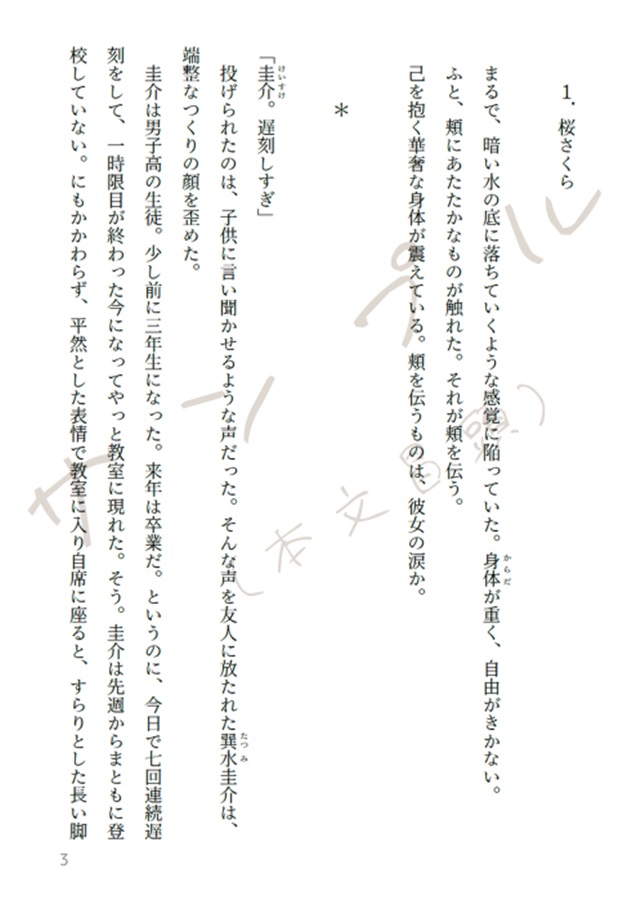 1．桜さくら
まるで、暗い水の底に落ちていくような感覚に陥っていた。身体が重く、自由がきかない。
からだ
ふと、頬にあたたかなものが触れた。それが頬を伝う。
己を抱く華奢な身体が震えている。頬を伝うものは、彼女の涙か。
＊
「圭介。遅刻しすぎ」
けいすけ
投げられたのは、子供に言い聞かせるような声だった。そんな声を友人に放たれた巽水圭介は、
たつみ
端整なつくりの顔を歪めた。
圭介は男子高の生徒。少し前に三年生になった。来年は卒業だ。というのに、今日で七回連続遅
刻をして、一時限目が終わった今になってやっと教室に現れた。そう。圭介は先週からまともに登
校していない。にもかかわらず、平然とした表情で教室に入り自席に座ると、すらりとした長い脚
3
サンプル
(本文冒頭)